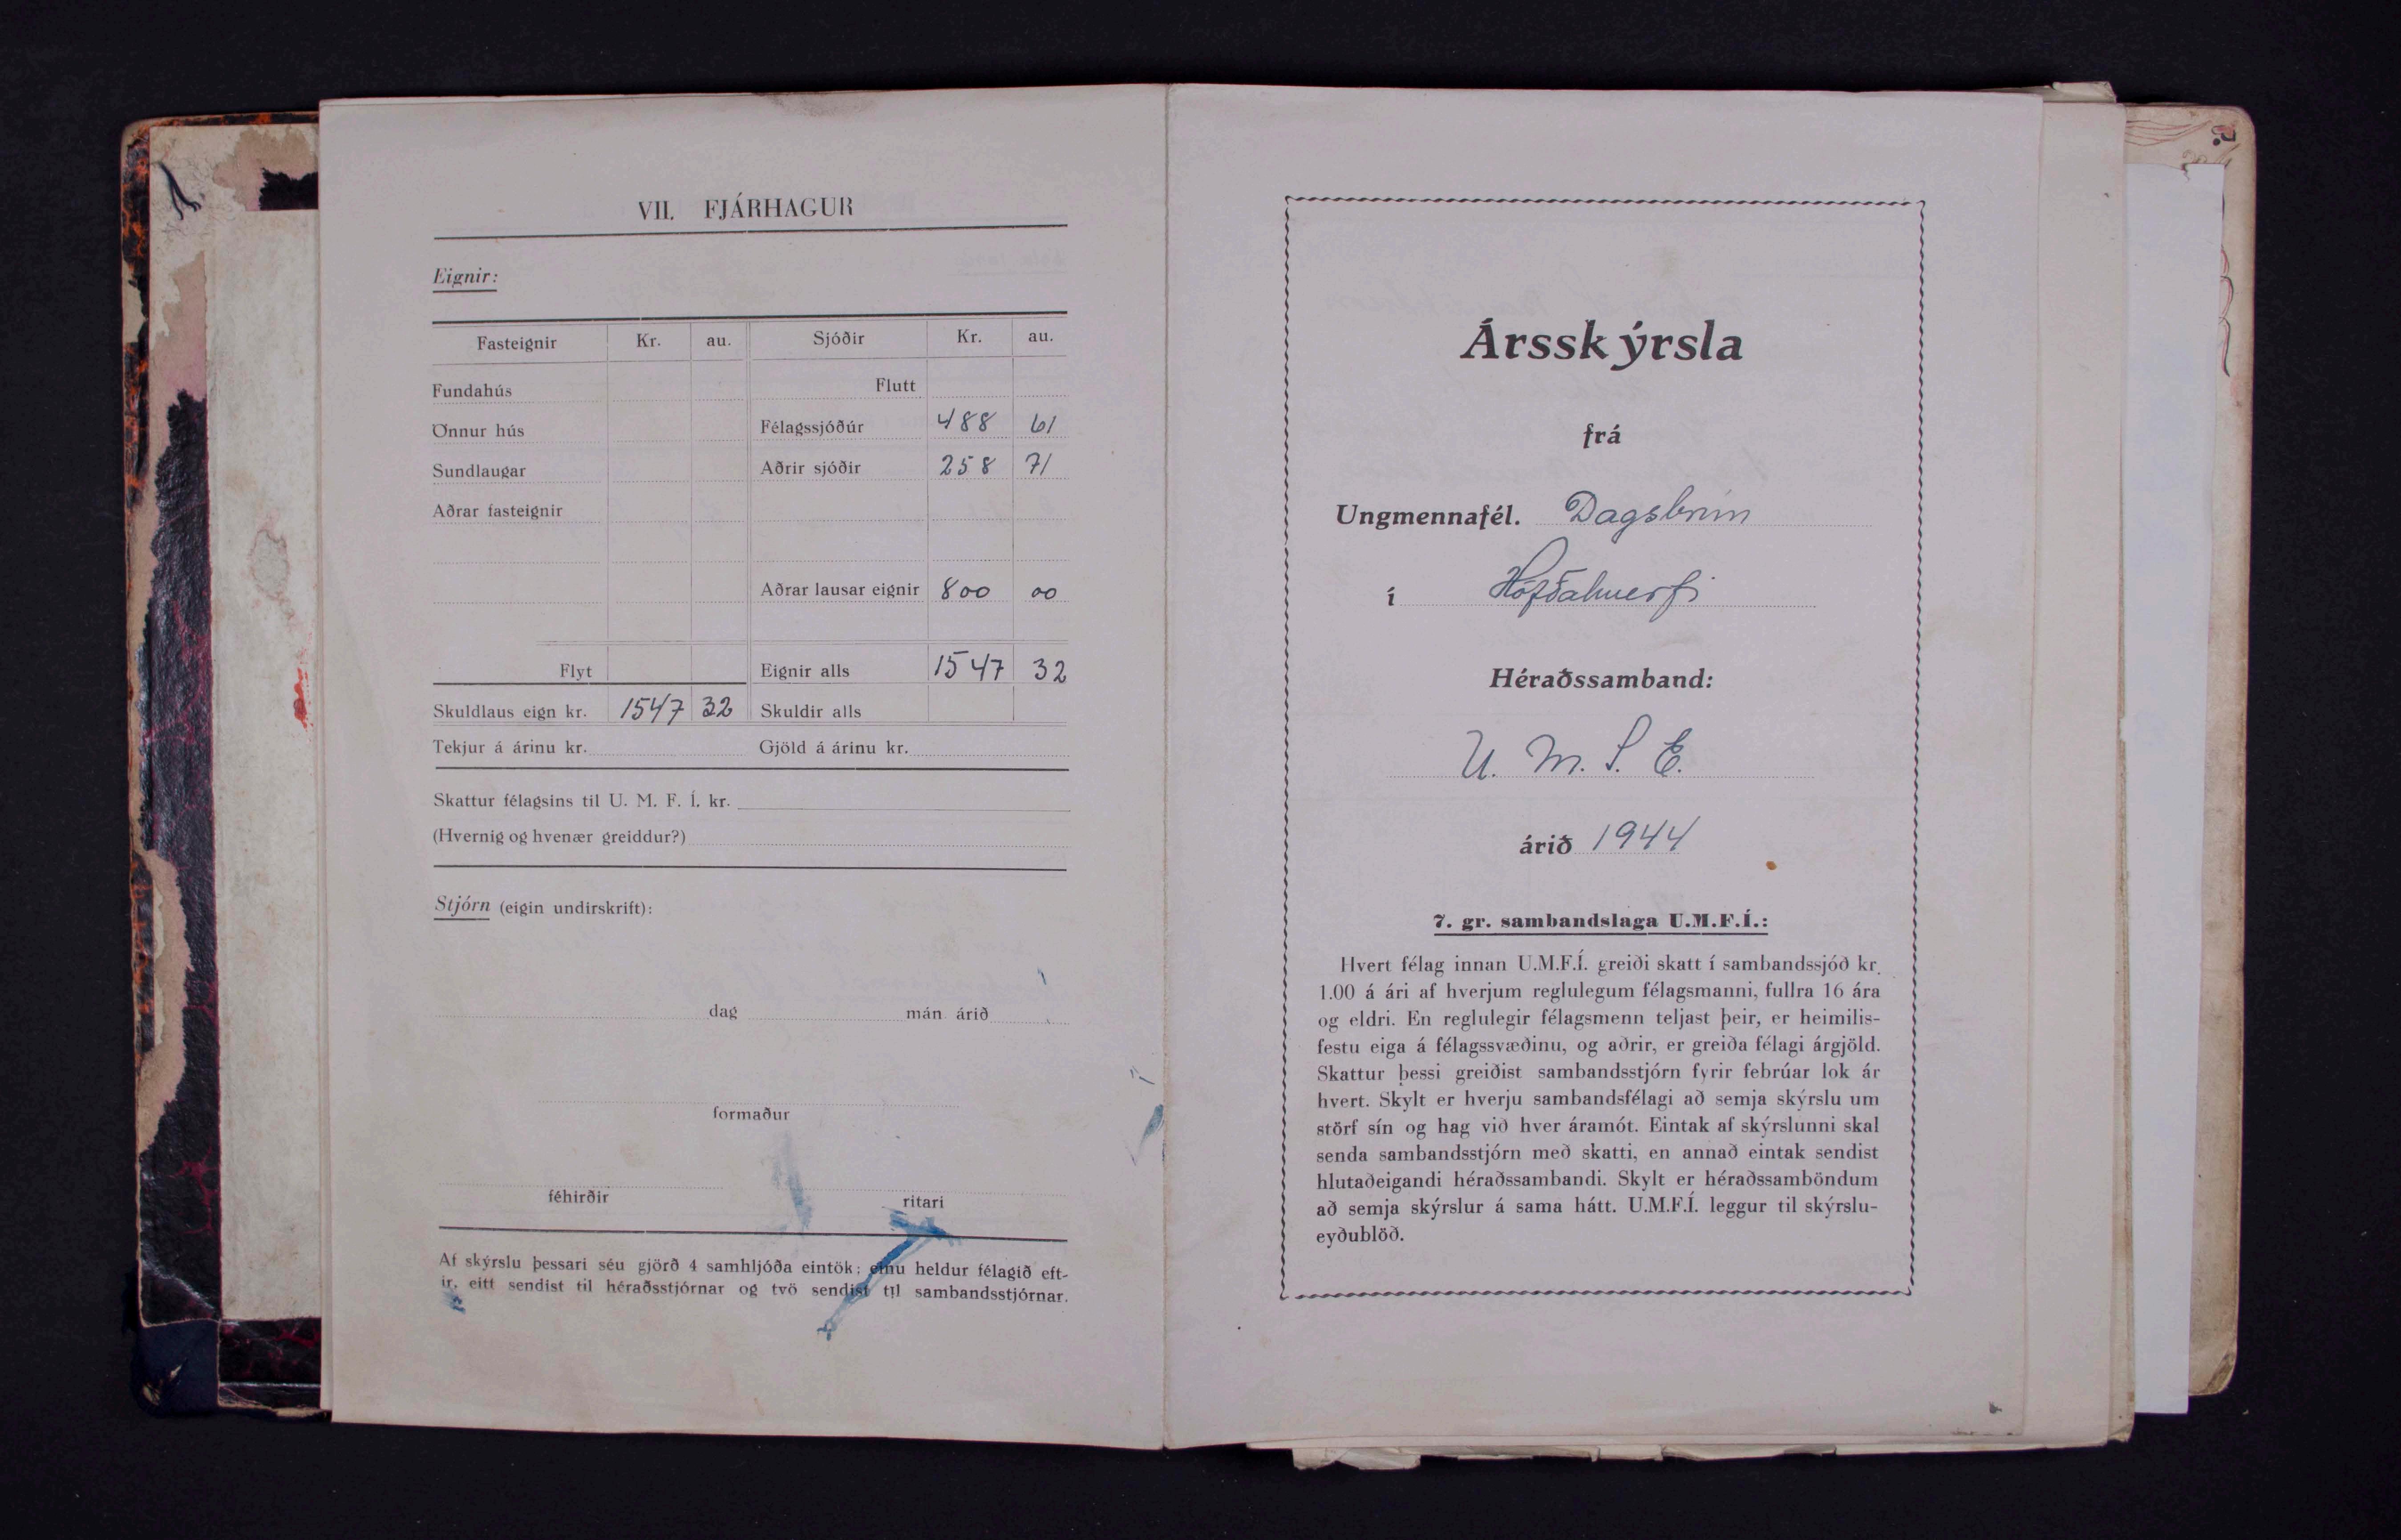 VII. FJÁRHAGUR
Eignir:
Fasteignir Kr. au. Sjóðir Kr. au.
Fundahús Flutt
Önnur hús Félagssjóðúr 488 61
Sundlaugar Aðrir sjóðir 258 71
Aðrar fasteignir
Aðrar lausar eignir 800 00
Flyt Eignir alls 1547 32
Skuldlaus eign kr. 1547 32 Skuldir alls
Tekjur á árinu kr. Gjöld á árinu kr.
Skattur félagsins til U. M. F. Í. kr.
(Hvernig og hvenær greiddur?)
Stjórn (eigin undirskrift):
dag mán. árið
formaður
féhirðir ritari
Af skýrslu þessari séu gjörð 4 samhljóða eintök; einu heldur félagið eft-
ir, eitt sendist til héraðsstjórnar og tvö sendist til sambandsstjórnar.
Ársskýrsla
frá
Ungmennafél. Dagsbrún
í Höfðahverfi
Héraðssamband:
U. M. S. E.
árið 1944
7. gr. sambandslaga U.M.F.Í.:
Hvert félag innan U.M.F.Í. greiði skatt í sambandssjóð kr.
1.00 á ári af hverjum reglulegum félagsmanni, fullra 16 ára
og eldri. En reglulegir félagsmenn teljast þeir, er heimilis-
festu eiga á félagssvæðinu, og aðrir, er greiða félagi árgjöld.
Skattur þessi greiðist sambandsstjórn fyrir febrúar lok ár
hvert. Skylt er hverju sambandsfélagi að semja skýrslu um
störf sín og hag við hver áramót. Eintak af skýrslunni skal
senda sambandsstjórn með skatti, en annað eintak sendist
hlutaðeigandi héraðssambandi. Skylt er héraðssamböndum
að semja skýrslur á sama hátt. U.M.F.Í. leggur til skýrslu-
eyðublöð.